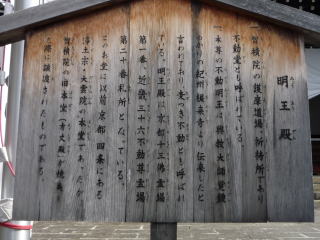 明王殿
一、智積院の護摩道場、祈祷所であり
不動堂とも呼ばれている。
一、本尊の不動明王は、興教大師覚鑁
ゆかりの紀州根来寺より伝来したと
言われており、麦つき不動とも呼ばれ
ている。明王殿は、京都十三佛霊場
第一番、近畿三十六不動尊霊場
第二十番札所となっている。
この本堂は以前、京都四条にある
浄土宗・大雲院の本堂であったが、
智積院の旧本堂(方丈殿)が焼失し
た際に譲渡されたものである。